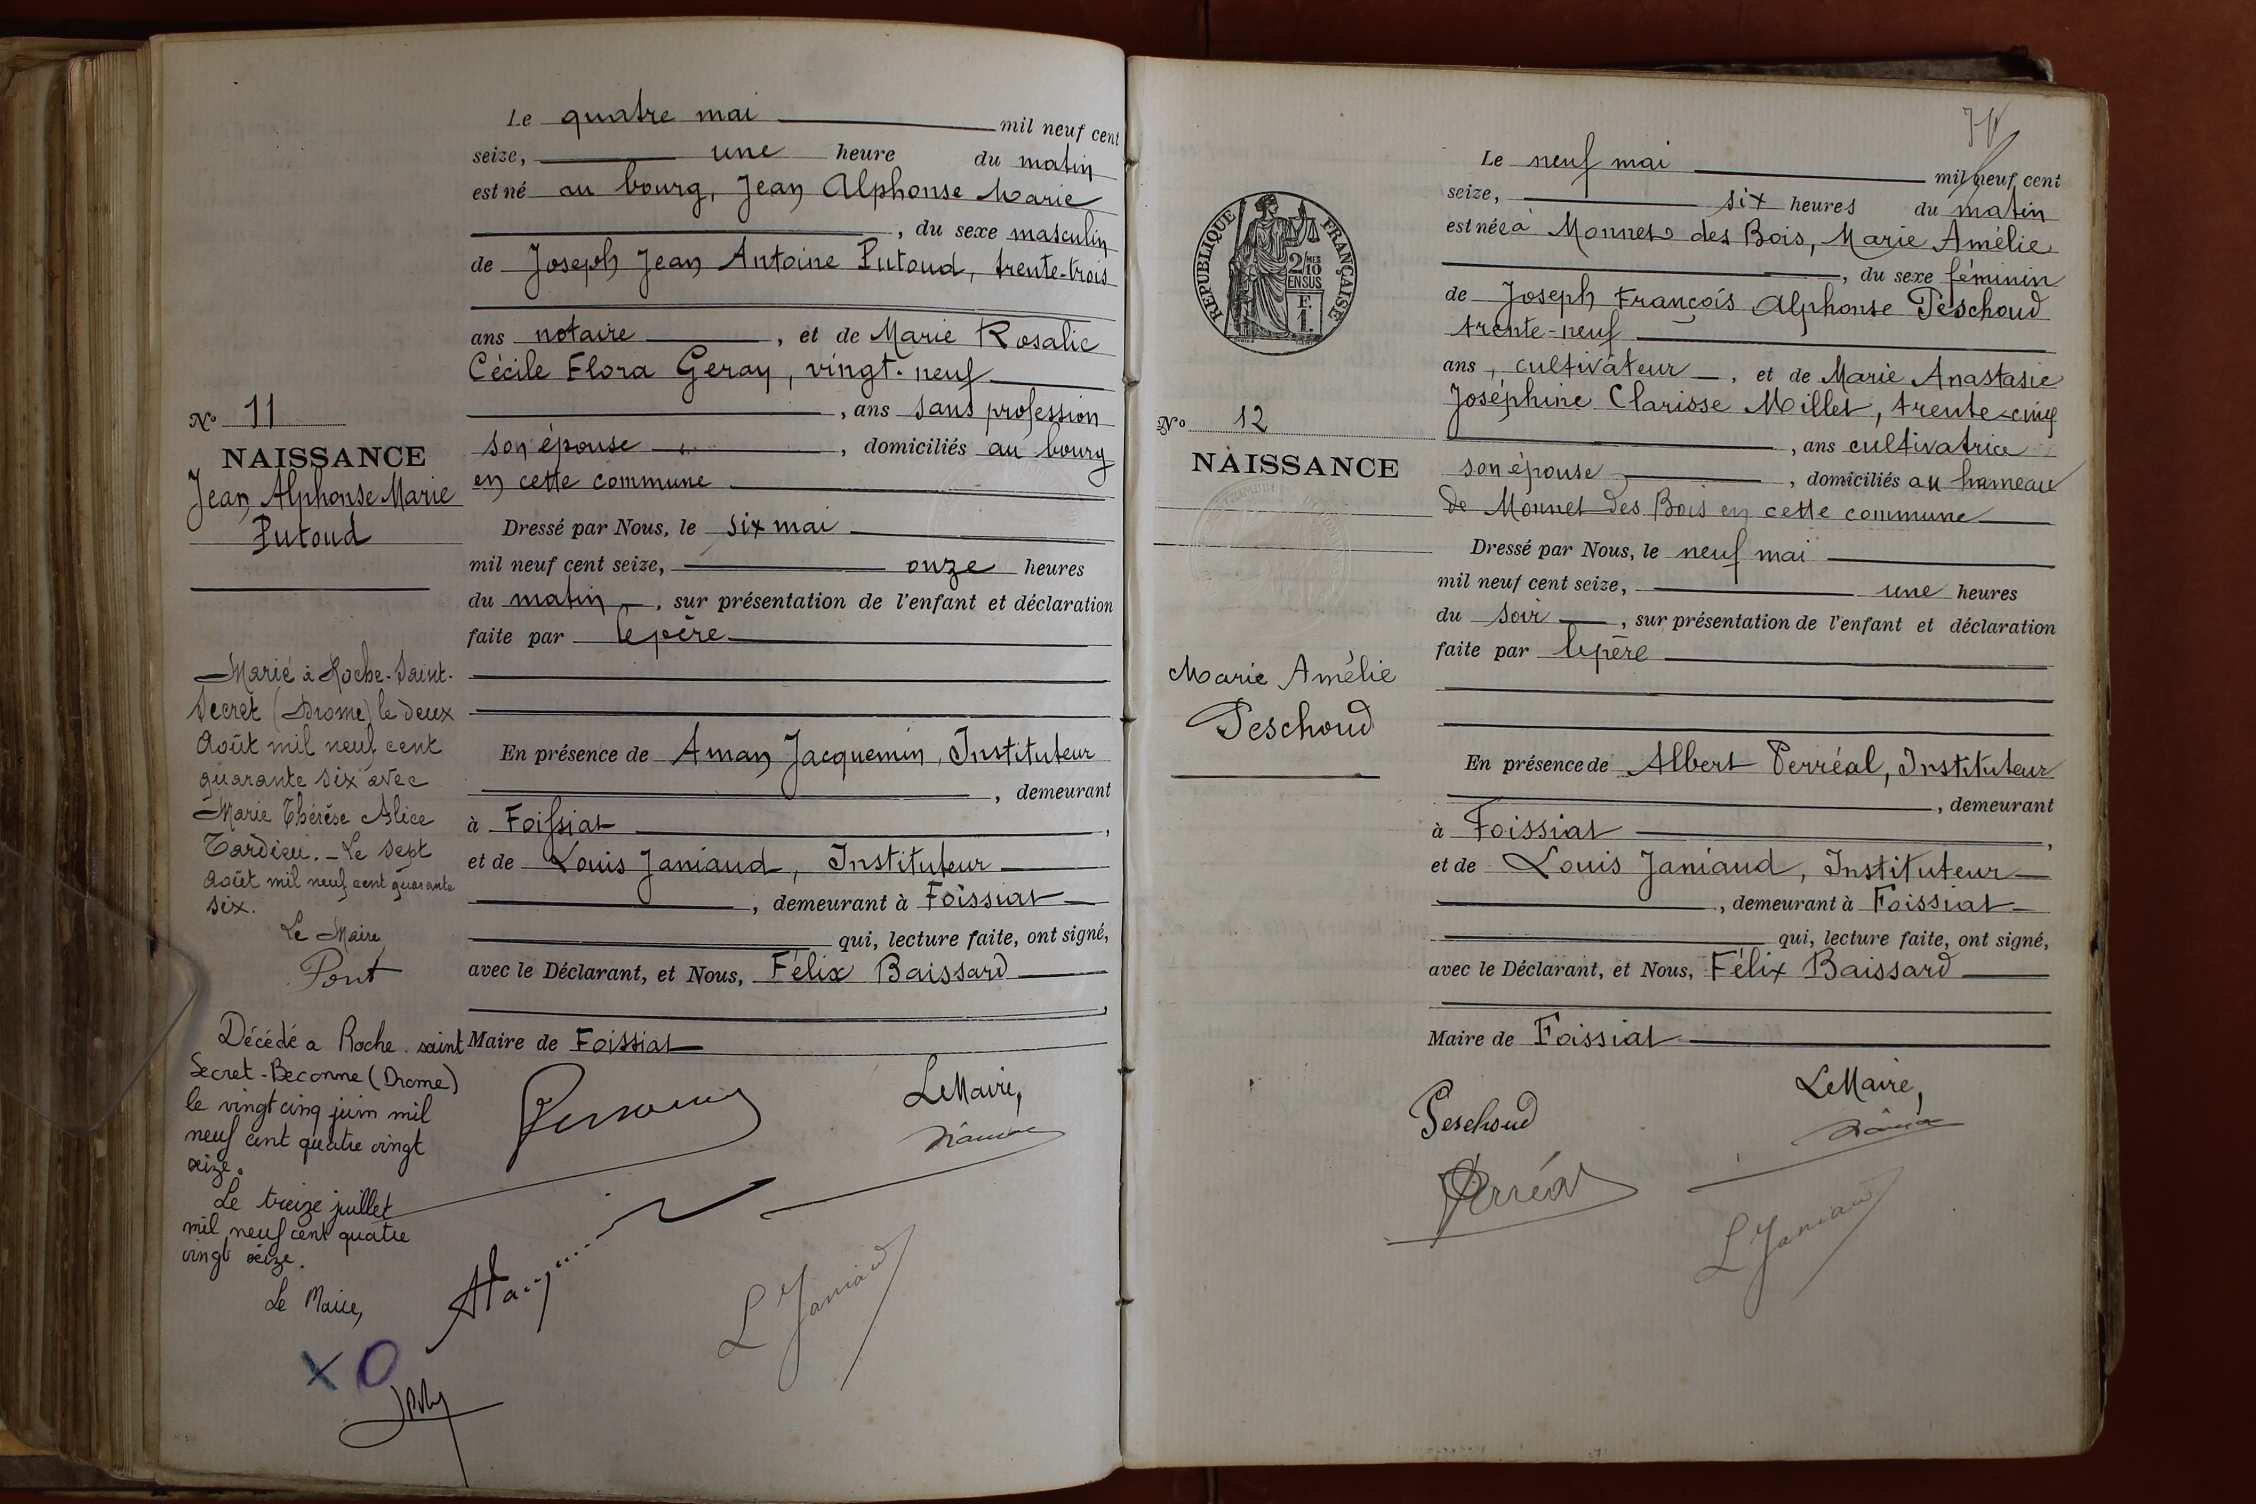 Le quatre mai mil neuf cent
seize, une heure du matin
est né au bourg, Jean Alphonse Marie
, du sexe masculin
de Joseph Jean Antoine Putoud, trente-trois
ans notaire , et de Marie Rosalie
Cécile Flora Geray, vingt-neuf
, ans sans profession
son épouse , domiciliés au bourg
en cette commune
Dressé par Nous, le six mai
mil neuf cent seize, onze heures
du matin , sur présentation de l'enfant et déclaration
faite par le père
En présence de Aman Jacquemin, Instituteur
, demeurant
à Foissiat ,
et de Louis Janiaud, Instituteur
, demeurant à Foissiat
qui, lecture faite, ont signé,
avec le Déclarant, et Nous, Félix Baissard
,
Maire de Foissiat
Le Maire,
L Janiaud
No 11
NAISSANCE
Jean Alphonse Marie
Putoud
Marié à Roche-Saint-
Secret (Drome) le deux
Août mil neuf cent
quarante six avec
Marie Thérèse Alice
Tardieu. - Le sept
Août mil neuf cent quarante
six.
Le Maire
Pont
Décédé a Roche . saint
Secret-Beconne (Drome)
le vingt cinq juin mil
neuf cent quatre vingt
seize.
Le treize juillet
mil neuf cent quatre
vingt seize.
Le Maire,
X O
Le neuf mai mil neuf cent
seize, six heures du matin
est née à Monnet des Bois, Marie Amélie
, du sexe féminin
de Joseph François Alphonse Peschoud
trente-neuf
ans, cultivateur , et de Marie Anastasie
Joséphine Clarisse Millet, trente-cinq
, ans cultivatrice
son épouse , domiciliés au hameau
de Monnet des Bois en cette commune
Dressé par Nous, le neuf mai
mil neuf cent seize, une heures
du soir , sur présentation de l'enfant et déclaration
faite par le père
En présence de Albert Perréal, Instituteur
, demeurant
à Foissiat ,
et de Louis Janiaud, Instituteur
, demeurant à Foissiat
qui, lecture faite, ont signé,
avec le Déclarant, et Nous, Félix Baissard
Maire de Foissiat
Peschoud
Le Maire,
Perréal
L Janiaud
RÉPUBLIQUE FRANÇAISE
2/10 MES
EN SUS
F.
1.
No 12
NAISSANCE
Marie Amélie
Peschoud